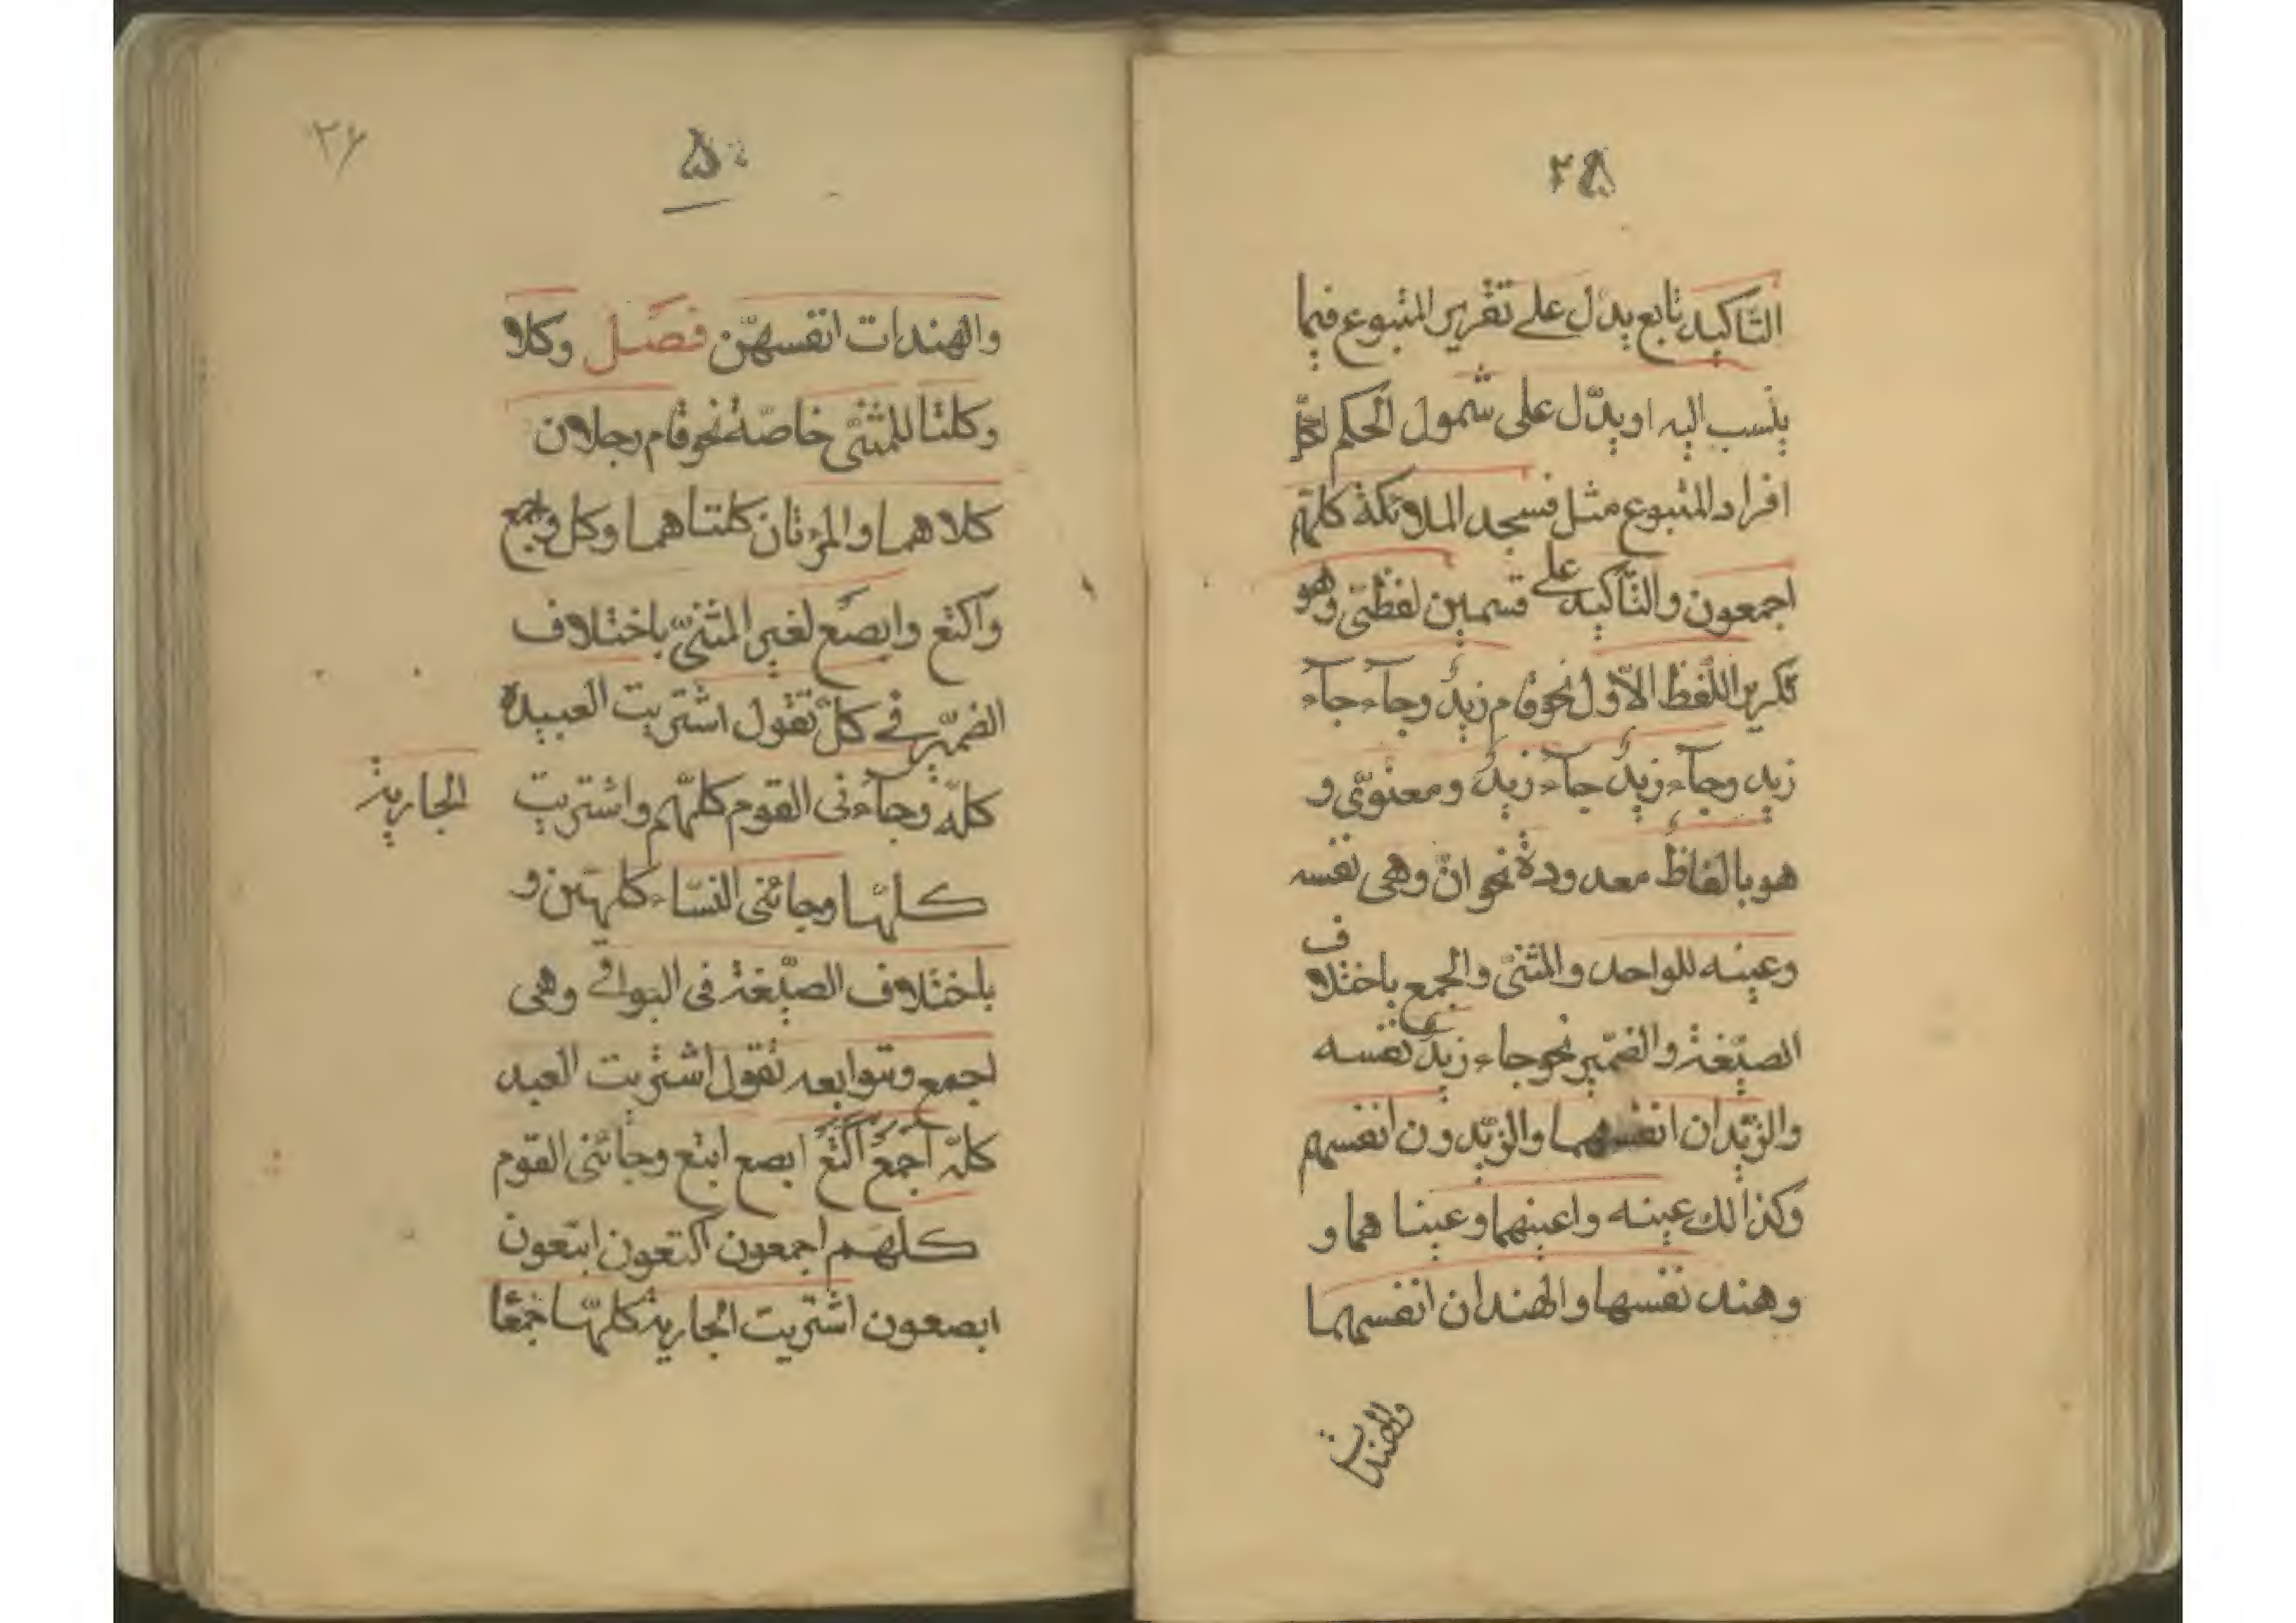 التّاكيد تابع يدّل على تقرير المتبوع فيما
ينسب اليه او يدّل على شمول الحكم لكلّ
افراد المتبوع مثل فسجد الملائكة كلّهم
اجمعون والتّاكيد على قسمين لفظىّ وهو
تكرير اللّفظ الاوّل نحو قام زيدٌ وجآء جآء
زيد وجآء زيدٌ جآء زيدٌ ومعنوىّ و
هو بالفاظٌ معدودة نحو انّ وهى نفسه
وعينه للواحد والمثنىّ والجمع باختلاف
الصيّغة والضمّير نحو جاء زيدٌ نفسه
والزيّدان انفسهما والزيّدون انفسهم
وكذالك عينه واعينهما وعينا هما و
وهند نفسها والهندان انفسهما
والهندات
۵۰
۲۶
والهندات انفسهّن فصَل وكلا
وكلتا للمثنىّ خاصّة نحو قام رجلان
كلاهما والمرئتان كلتاهما وكل واجمع
واكتع وابصَع لغير المثنىّ باختلاف
الضمّير فى كلّ تقول اشتريت العبيدة
كلّه وجآءنى القوم كلّهم واشتريت الجارية
كلّها وجائنى النسّاء كلهّن و
باختلاف الصيّغة فى البواقى وهى
اجمع وتوابعه تقول اشتريت العبد
كلّه اجمَعَ اكتَعَ ابصع ابتع وجائنى القوم
كلهَم اجمعون اكتعون ابتعون
ابصعون اشتريت الجارية كلّها جمعًا